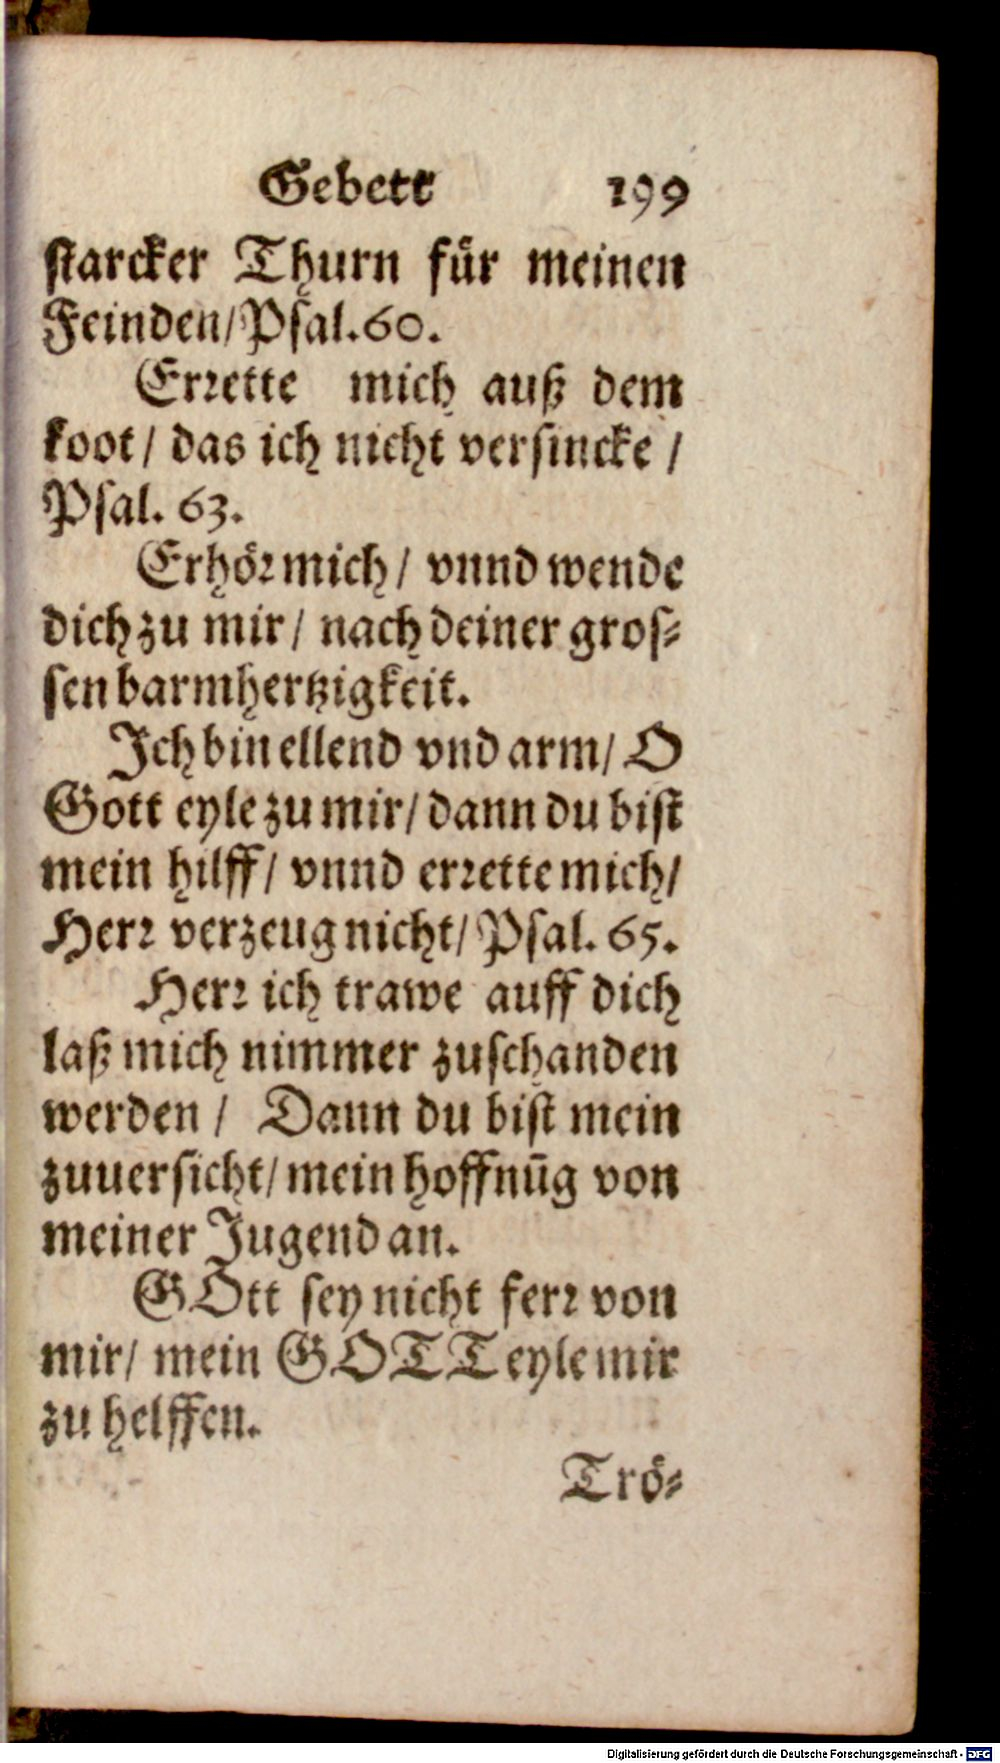 Gebett 199
ſtarcker Thurn fuͤr meinen
Feinden/ Pſal. 60.
Erꝛette mich auß dem
koot / das ich nicht verſincke /
Pſal. 63.
Erhoͤꝛ mich / vnnd wende
dich zu mir / nach deiner groſ⸗
ſen barmhertzigkeit.
Ich bin ellend vnd arm / O
Gott eyle zu mir / dann du biſt
mein hilff / vnnd erꝛette mich /
Herꝛ verzeug nicht / Pſal. 65.
Herꝛ ich trawe auff dich
laß mich nimmer zuſchanden
werden / Dann du biſt mein
zuuerſicht / mein hoffnūg von
meiner Jugend an.
GOtt ſey nicht ferꝛ von
mir / mein GOTT eyle mir
zu helffen.
Troͤ⸗
Digitalisierung gefördert durch die Deutsche Forschungsgemeinschaft - DFG